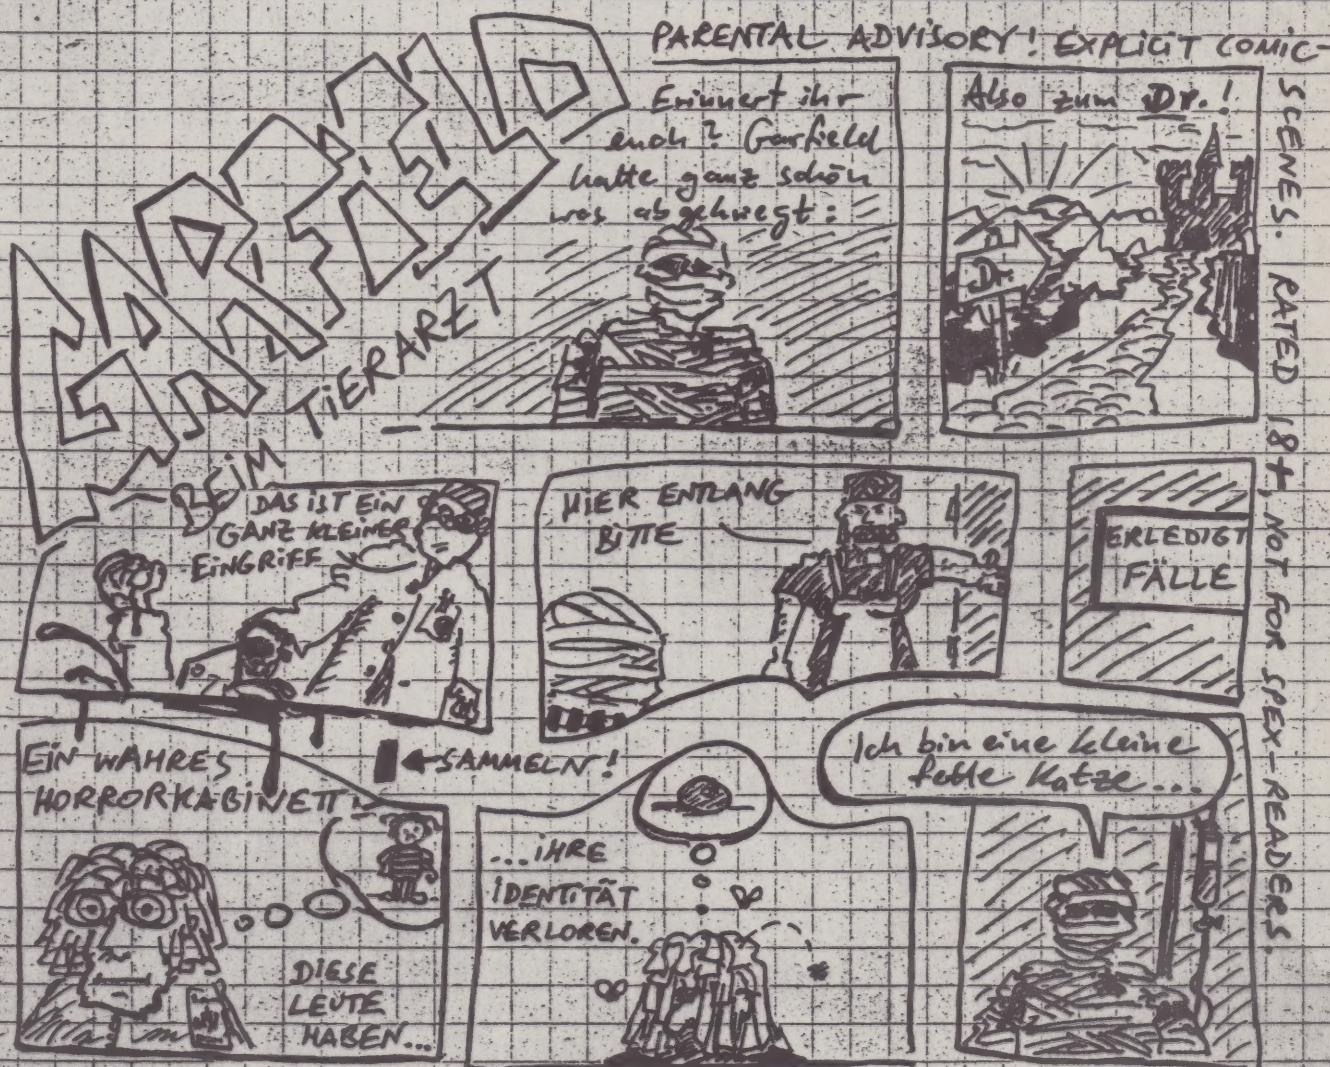 GARFIELD
BEIM TIERARZT
PARENTAL ADVISORY! EXPLICIT COMIC-
SCENES. RATED 18+, NOT FOR SPEX-READERS.
Erinnert ihr
euch? Garfield
hatte ganz schön
was abgekriegt:
Also zum Dr.!
Dr.
DAS IST EIN
GANZ KLEINER
EINGRIFF
HIER ENTLANG
BITTE
ERLEDIGT
FÄLLE
EIN WAHRES
HORRORKABINETT!
SAMMELN!
DIESE
LEUTE
HABEN...
...IHRE
IDENTITÄT
VERLOREN.
Ich bin eine kleine
fette Katze...